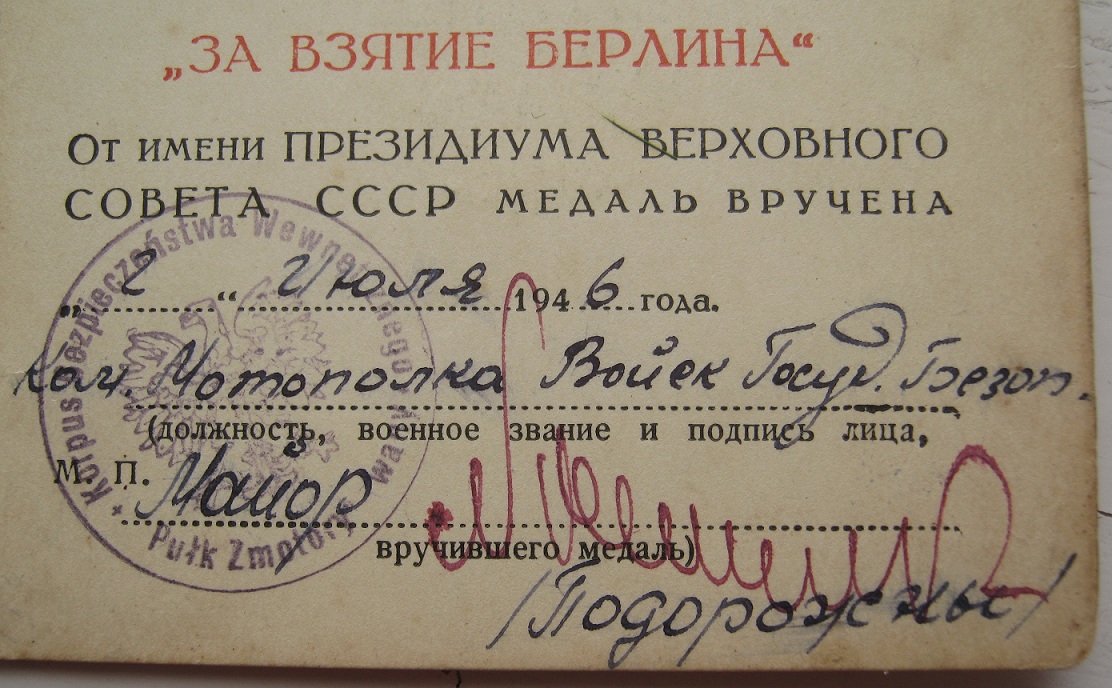 „ЗА ВЗЯТИЕ БЕРЛИНА“
От имени ПРЕЗИДИУМА ВЕРХОВНОГО
СОВЕТА СССР МЕДАЛЬ ВРУЧЕНА
„2“ Июля 1946 года.
Ком. Мотополка Войск Госуд. Безоп.
(должность, военное звание и подпись лица,
М. П. Майор
вручившего медаль)
/Подорожны/
Korpus Bezpieczeństwa Wewnętrznego
Pułk Zmotoryzowany